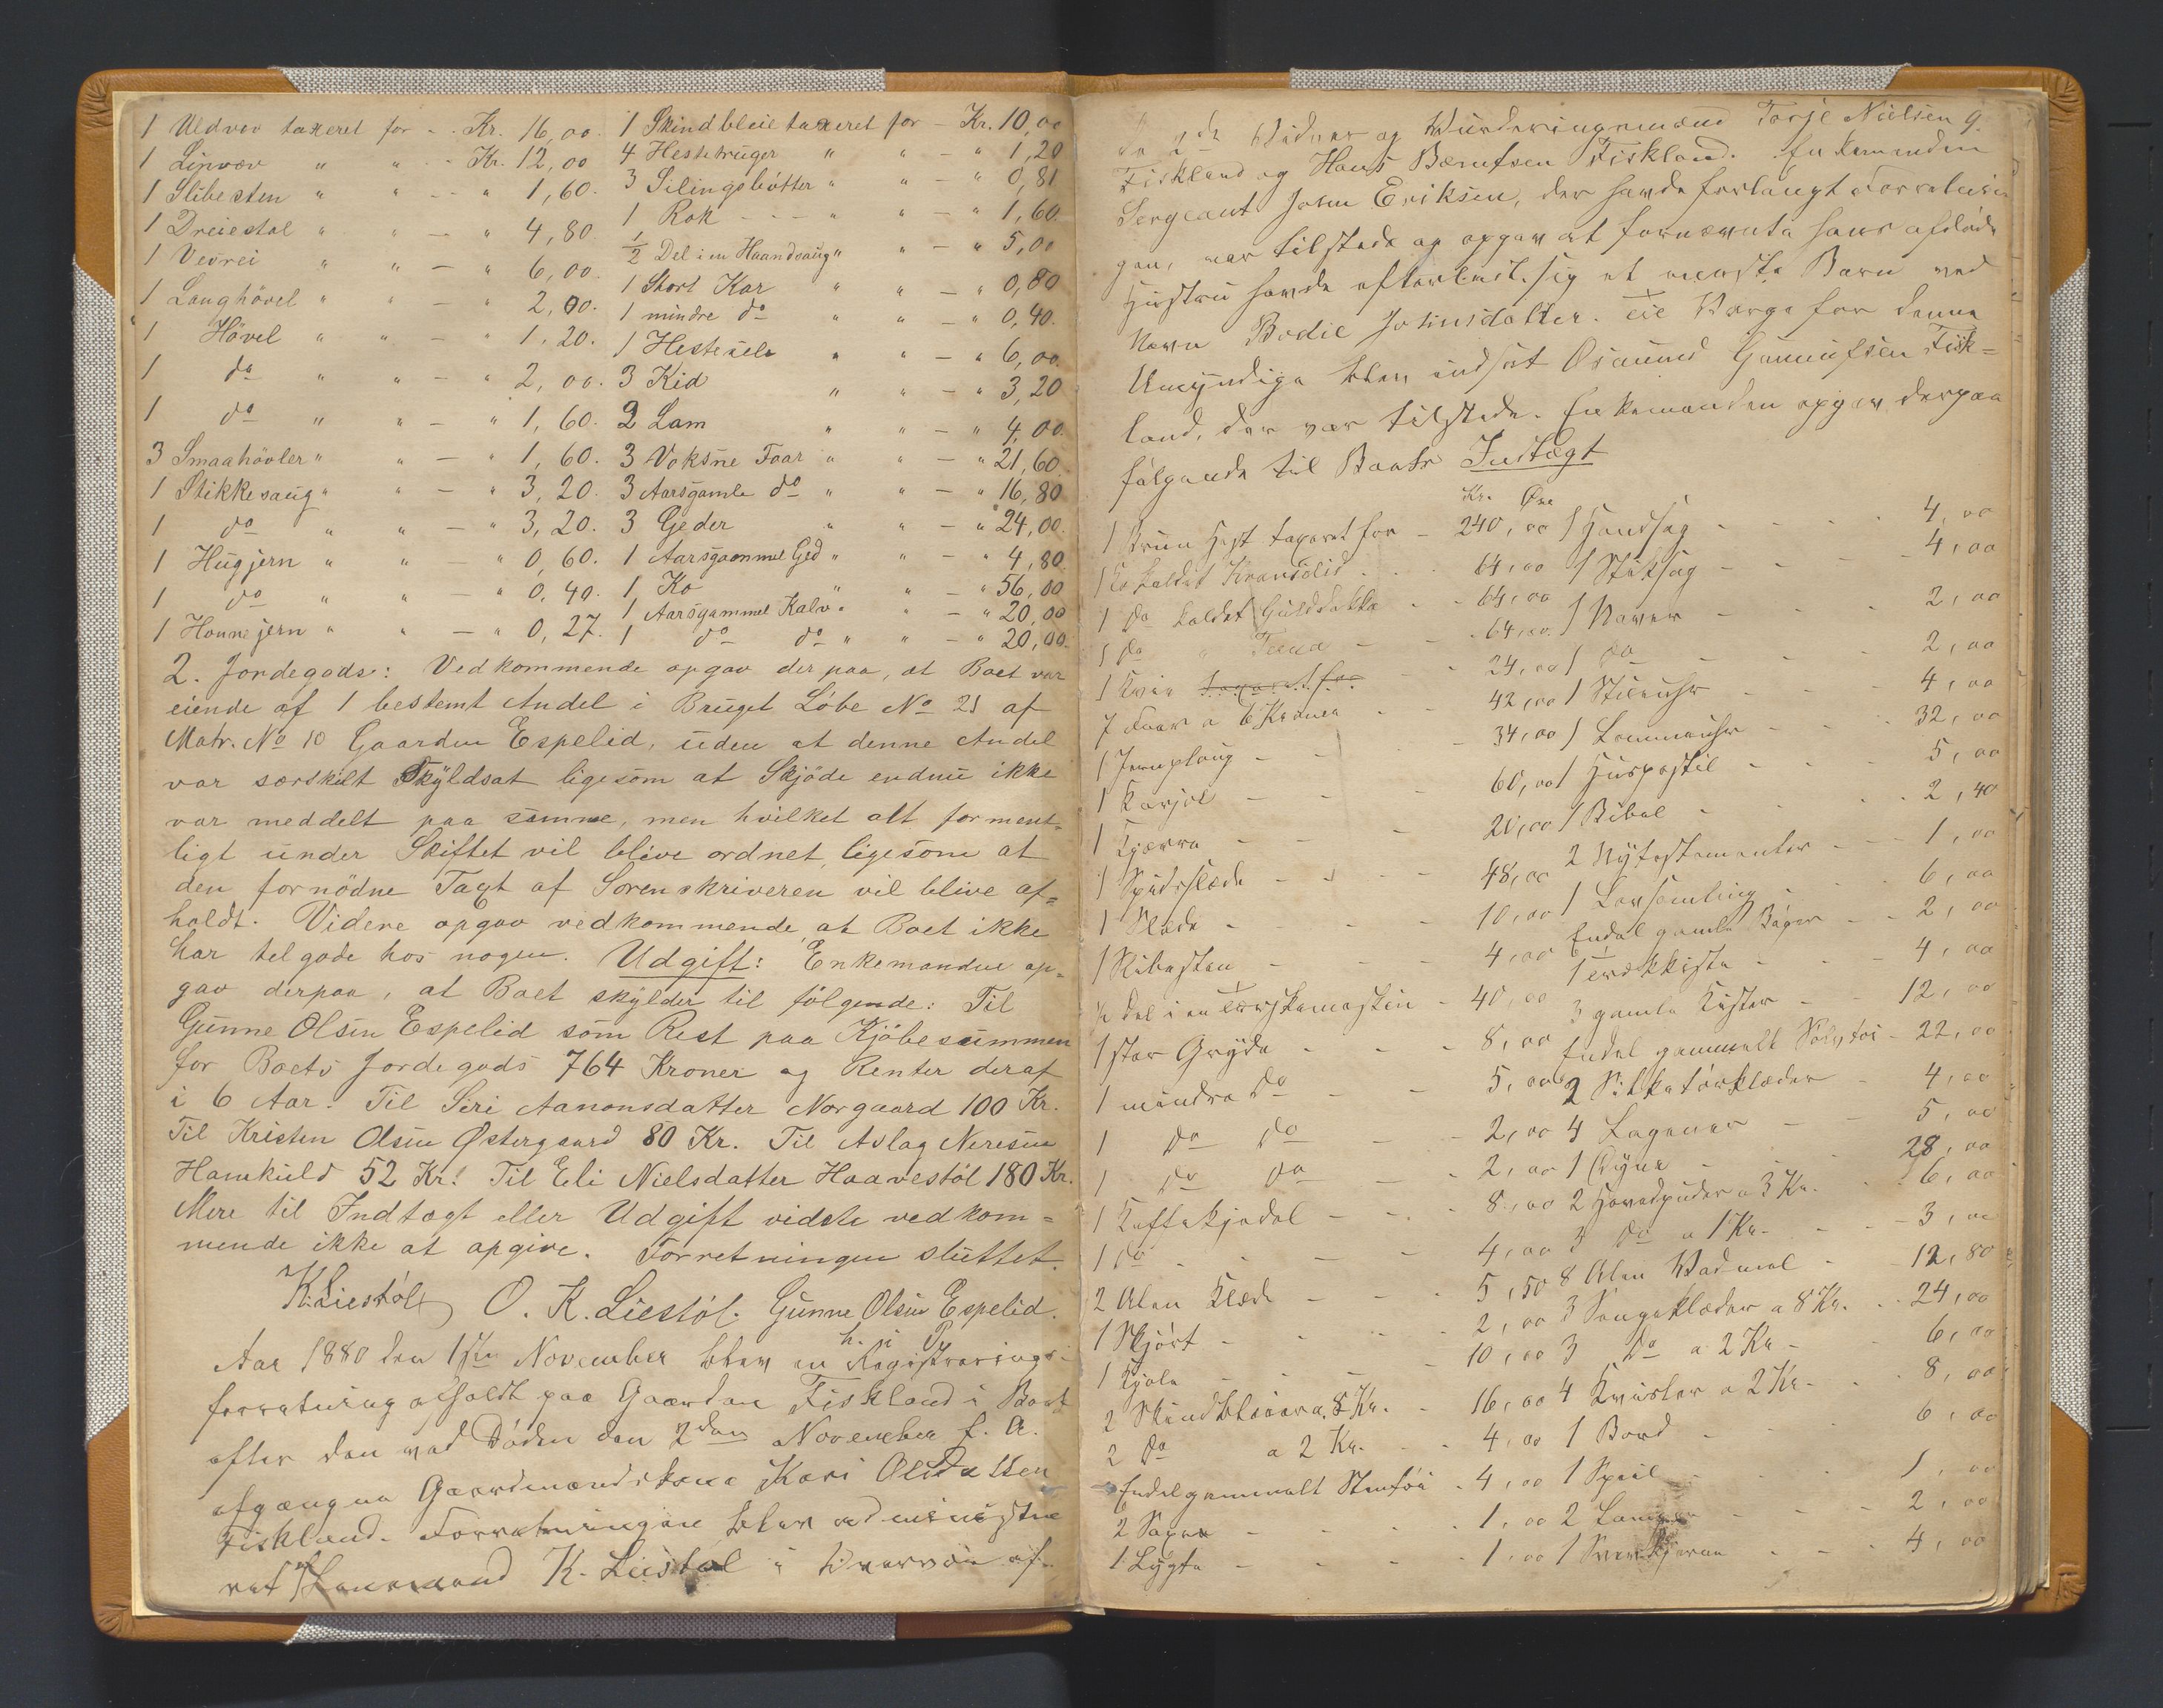 1 Uldvev taxeret for - - Kr. 16,00.
1 Linvæv " " - - Kr. 12,00
1 Slibesten " " - - " 1,60.
1 Dreiestol " " - " 4,80
1 Vevrei " " - " 6,00
1 Langhövel " " - " 2,00.
1 Hövel " " - " 1,20.
1 do " " - " 2,00.
1 do " " - " 1,60.
3 Smaahövler " " - " 1,60.
1 Stikkesaug " " - " 3,20.
1 do " " - " 3,20.
1 Hugjern " " - " 0,60.
1 do " " - " 0,40.
1 Honnejern " " - " 0,27.
1 Skindbleie taxeret for - Kr. 10,00
4 Hestetruger " " - " 1,20
3 Silingsbötter " " - " 0,81
1 Rok - - - " " - " 1,60.
½ Del i en Haandsaug " " - " 5,00
1 Stort Kar " " - " 0,80
1 mindre do " " - " 0,40.
1 Hestesele " " - " 6,00.
3 Kid " " - " 3,20
2 Lam " " - " 4,00.
3 Voksne Faar " " - " 21,60
3 Aarsgamle do " " - " 16,80
3 Geder " " - " 24,00.
1 Aarsgammel Ged " " - " 4,80.
1 Ko " " - " 56,00
1 Aarsgammel Kalv " " - " 20,00
1 do do " " - " 20,00.
2. Jordegods: Vedkommende opgav derpaa, at Boet var
eiende af 1 bestemt Andel i Bruget Löbe No 21 af
Matr. No 10 Gaarden Espelid, uden at denne Andel
var særskilt Skyldsat ligesom at Skjöde endnu ikke
var meddelt paa samme, men hvilket alt forment=
ligt under Skiftet vil blive ordnet, ligesom at
den fornödne Taxt af Sorenskriveren vil blive af=
holdt. Videre opgav vedkommende at Boet ikke
har tilgode hos nogen. Udgift: Enkemanden op=
gav derpaa, at Boet skylder til fölgende: Til
Gunne Olsen Espelid som Rest paa Kjöbesummen
for Boets Jordegods 764 Kroner og Renter deraf
i 6 Aar. Til Siri Aanonsdatter Norgaard 100 Kr.
Til Kristen Olsen Østergaard 80 Kr. Til Aslag Neresen
Hamkuld 52 Kr. Til Eli Nielsdatter Haavestöl 180 Kr.
Mere til Indtægt eller Udgift vidste vedkom=
mende ikke at opgive. Forretningen sluttet.
K. Liestöl O. K. Liestöl. Gunne Olsen Espelid.
h. p. P.
Aar 1880 den 1ste November blev en Registrerings-
forretning afholdt paa Gaarden Fiskland i Boet
efter den ved Döden den 2den November f. A.
afgangne Gaardmandskone Kari Olsdatter
Fiskland. Forretningen blev administre
ret af Lensmand K. Liestöl i Overvær af
de 2de Vidner og Vurderingsmænd Torje Nielsen
Fiskland og Hans Bærulfsen Fiskland. Enkemanden
Sergeant John Eriksen, der havde forlangt Forretnin
gen, var tilstede og opgav at fornævnte hans afdöde
Hustru havde efterladt sig et eneste Barn ved
Navn Bodil Johnsdatter. Til Værge for denne
Umyndige blev indsat Osmund Gunnufsen Fisk=
land, der var tilstede. Enkemanden opgav derpaa
fölgende til Boets Indtægt
Kr. Øre
1 Brun Hest taxeret for - 240,00
1 Ko kaldet Kransolid - 64,00
1 do kaldet Guldstakka - 64,00
1 do " - 64,00
1 Kvie taxeret for - 24,00
7 Faar a 6 Kroner - 42,00
1 Jernploug - 34,00
1 Karjol - 60,00
1 Kjærre - 20,00
1 Spidsslæde - 48,00
1 Slæde - 10,00
1 Slibesten - 4,00
½ Del i en Tærskemaskin - 40,00
1 stor Gryde - 8,00
1 mindre do - 5,00
1 do do - 2,00
1 do do - 2,00
1 Kaffekjedel - 8,00
1 do - 4,00
2 Alen Klæde - 5,50
1 Skjört - 2,00
1 Kjole - 10,00
2 Skindbleier a 8 Kr. - 16,00
2 do a 2 Kr. - 4,00
Endel gammelt Stentöi - 4,00
2 - 1,00
1 Lygte - 1,00
1 Handsag - 4,00
1 Stiksag - 4,00
1 Naver - 2,00
1 do - 2,00
1 Stueuhr - 4,00
1 Lommeuhr - 32,00
1 Huspostil - 5,00
1 Bibel - 2,40
2 Nytestamenter - 1,00
1 Lovsamling - 6,00
Endel gamle Böger - 2,00
1 - 4,00
3 gamle Kister - 12,00
Endel gammelt Sölvtöi - 22,00
2 Silketörklæder - 4,00
4 Lagener - 5,00
1 Dyne - 28,00
2 Hovedpuder a 3 Kr. - 6,00
3 do a 1 Kr. - 3,00
8 Alen Vadmel - 12,80
3 Sengeklæder a 8 Kr. - 24,00
3 do a 2 Kr - 6,00
4 a 2 Kr. - 8,00
1 Bord - 6,00
1 Speil - 1,00
2 - 2,00
1 - 4,00